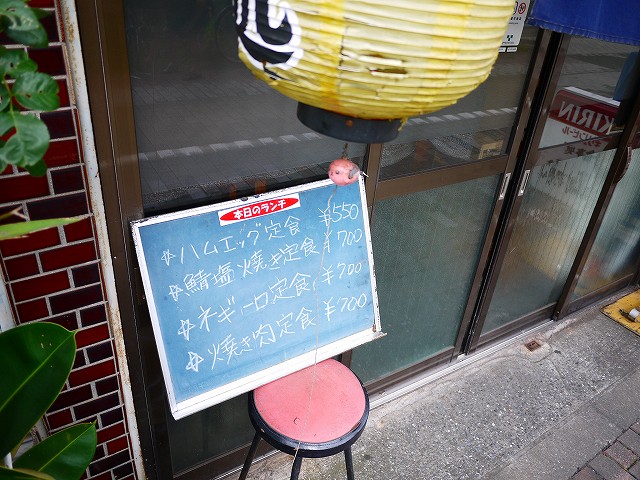 本日のランチ
*ハムエッグ定食 ¥550
*鯖塩焼き定食 ¥700
*ネギトロ定食 ¥700
*焼き肉定食 ¥700
KIRIN